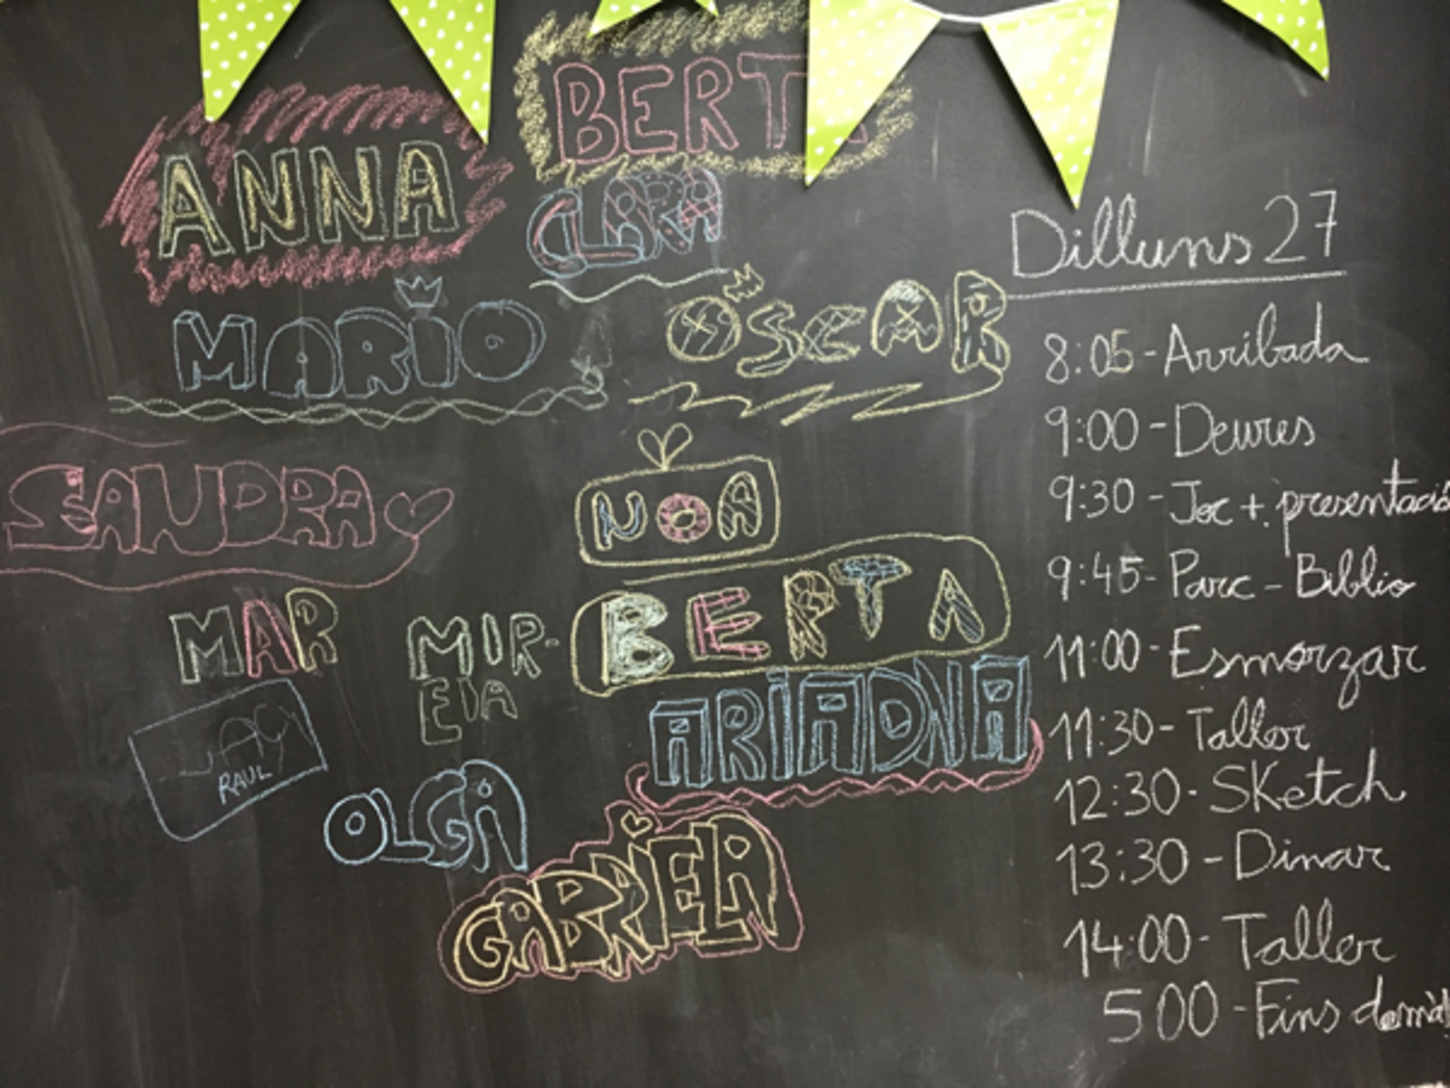 BERT
ANNA
CLARA
MARIO
ÒSCAR
SANDRA
NOA
BERTA
MAR
MIR-
EIA
ARIADNA
RAUL
OLGA
GABRIELA
Dilluns 27
8:05 - Arribada
9:00 - Deures
9:30 - Joc + presentació
9:45 - Parc - Biblio
11:00 - Esmorzar
11:30 - Taller
12:30 - SKetch
13:30 - Dinar
14:00 - Taller
5 00 - Fins demà!